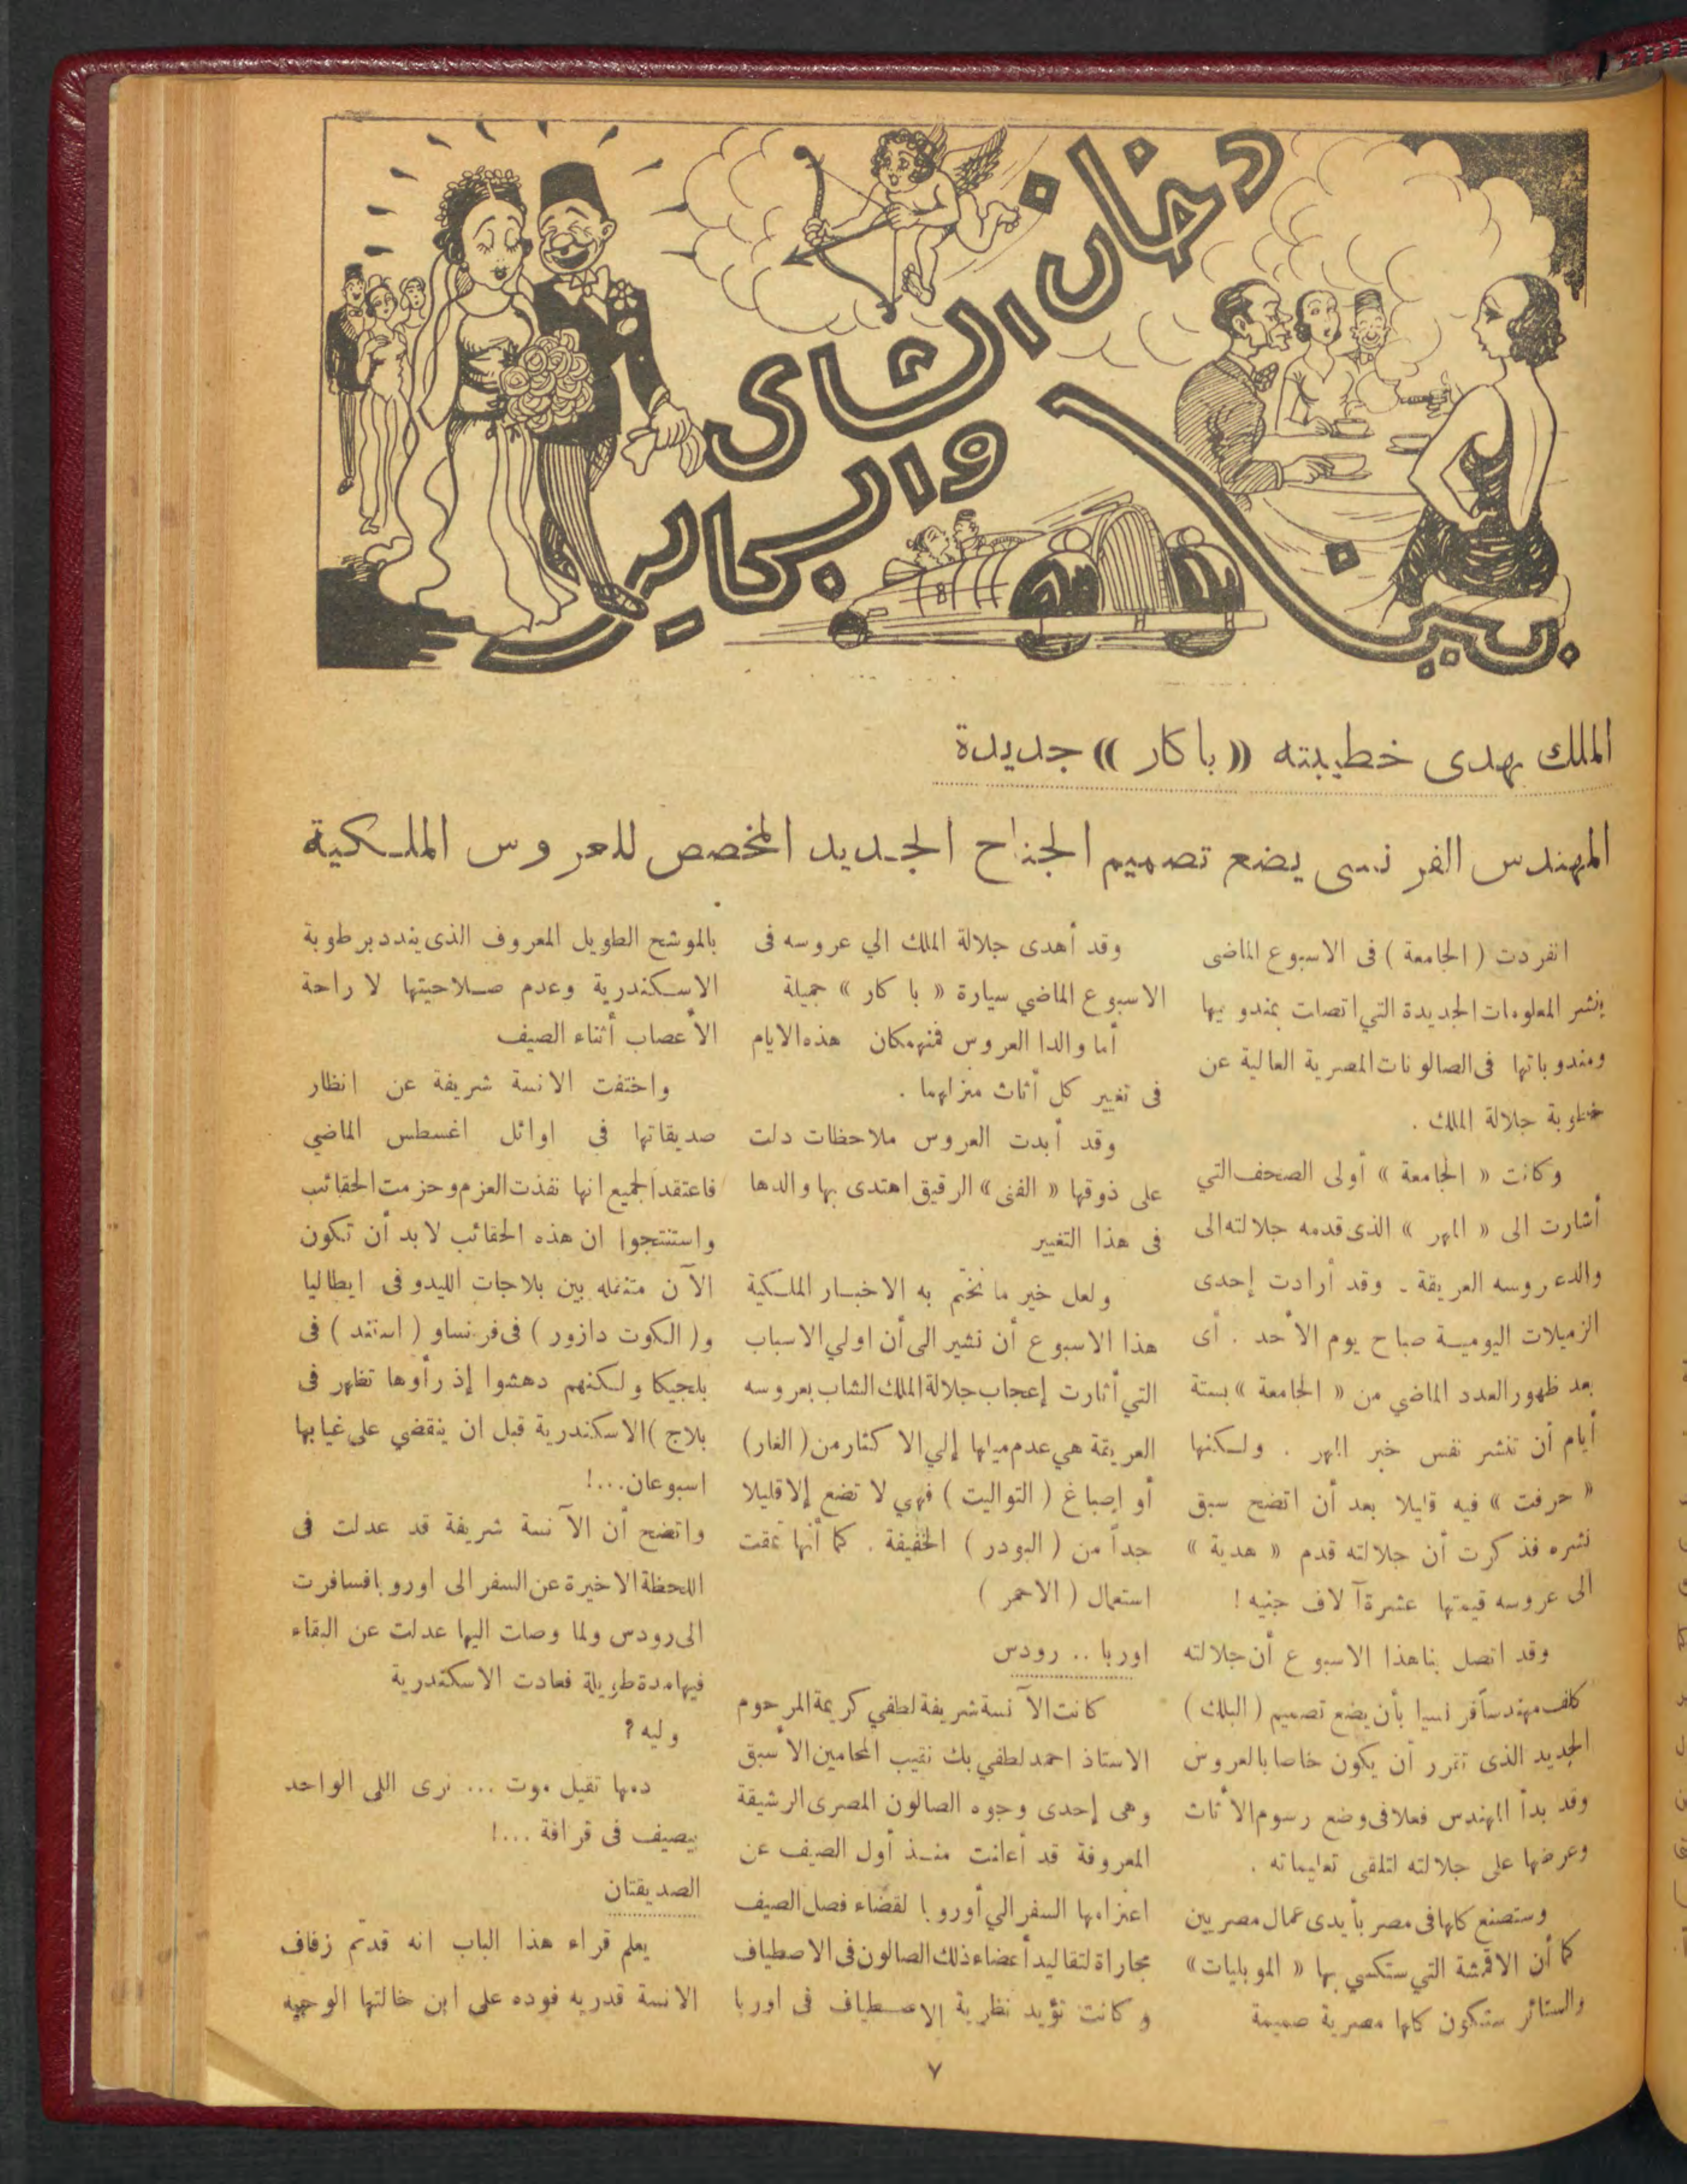 بين دخان الشاى والبكاير
الملك يهدى خطيبته « باكار » جديدة
المهندس الفرنسى يضع تصميم الجناح الجديد المخصص للعروس الملكية
انفردت ( الجامعة ) فى الاسبوع الماضى
بنشر المعلومات الجديدة التي اتصلت بمندوبيها
ومندوباتها فى الصالونات المصرية العالية عن
خطوبة جلالة الملك .
وكانت « الجامعة » أولى الصحف التي
أشارت الى « المهر » الذى قدمه جلالته الى
والد عروسه العريقة . وقد أرادت إحدى
الزميلات اليومية صباح يوم الأحد . أى
بعد ظهور العدد الماضي من « الجامعة » بستة
أيام أن تنشر نفس خبر المهر . ولكنها
« حرفت » فيه قليلا بعد أن اتضح سبق
نشره فذكرت أن جلالته قدم « هدية »
الى عروسه قيمتها عشرة آلاف جنيه !
وقد اتصل بنا هذا الاسبوع أن جلالته
كلف مهندسا فرنسيا بأن يضع تصميم ( البلك )
الجديد الذى تقرر أن يكون خاصا بالعروس
وقد بدأ المهندس فعلا فى وضع رسوم الأثاث
وعرضها على جلالته لتلقى تعليماته .
وستصنع كلها فى مصر بأيدى عمال مصريين
كما أن الاقمشة التي ستكسي بها « الموبليات »
والستائر ستكون كلها مصرية صميمة
وقد أهدى جلالة الملك الي عروسه فى
الاسبوع الماضي سيارة « باكار » جميلة
أما والدا العروس فمنهمكان هذه الايام
فى تغيير كل أثاث منزلهما .
وقد أبدت العروس ملاحظات دلت
على ذوقها « الفنى » الرقيق اهتدى بها والدها
فى هذا التغيير
ولعل خير ما نختم به الاخبار الملكية
هذا الاسبوع أن نشير الى أن اولي الاسباب
التي أثارت إعجاب جلالة الملك الشاب بعروسه
العريقة هي عدم ميلها إلي الاكثار من ( الفار )
أو اصباغ ( التواليت ) فهي لا تضع إلا قليلا
جداً من ( البودر ) الخفيفة . كما أنها تمقت
استعمال ( الاحمر )
اوربا .. رودس
كانت الآنسة شريفة لطفي كريمة المرحوم
الاستاذ احمد لطفي بك نقيب المحامين الأسبق
وهى إحدى وجوه الصالون المصرى الرشيقة
المعروفة قد أعلنت منذ أول الصيف عن
اعتزامها السفر الي أوروبا لقضاء فصل الصيف
مجاراة لتقاليد أعضاء ذلك الصالون فى الاصطياف
وكانت تؤيد نظرية الاصطياف فى اوربا
بالموشح الطويل المعروف الذى يندد برطوبة
الاسكندرية وعدم صلاحيتها لا راحة
الأعصاب أثناء الصيف
واختفت الانسة شريفة عن انظار
صديقاتها فى اوائل اغسطس الماضي
فاعتقد الجميع انها نفذت العزم وحزمت الحقائب
واستنتجوا ان هذه الحقائب لابد أن تكون
الآن متنقله بين بلاجات الليدو فى ايطاليا
و( الكوت دازور ) فى فرنسا و ( استند ) فى
بلجيكا ولكنهم دهشوا إذ رأوها تظهر فى
بلاج )الاسكندرية قبل ان ينقضي على غيابها
اسبوعان...!
واتضح أن الآنسة شريفة قد عدلت فى
اللحظة الاخيرة عن السفر الى اوروبا فسافرت
الى رودس ولما وصلت اليها عدلت عن البقاء
فيها مدة طويلة فعادت الاسكندرية
وليه ؟
دمها تقيل موت ... نرى اللى الواحد
بيصيف فى قرافة ...!
الصديقتان
يعلم قراء هذا الباب انه قدتم زفاف
الانسة قدريه فوده على ابن خالتها الوجيه
٧